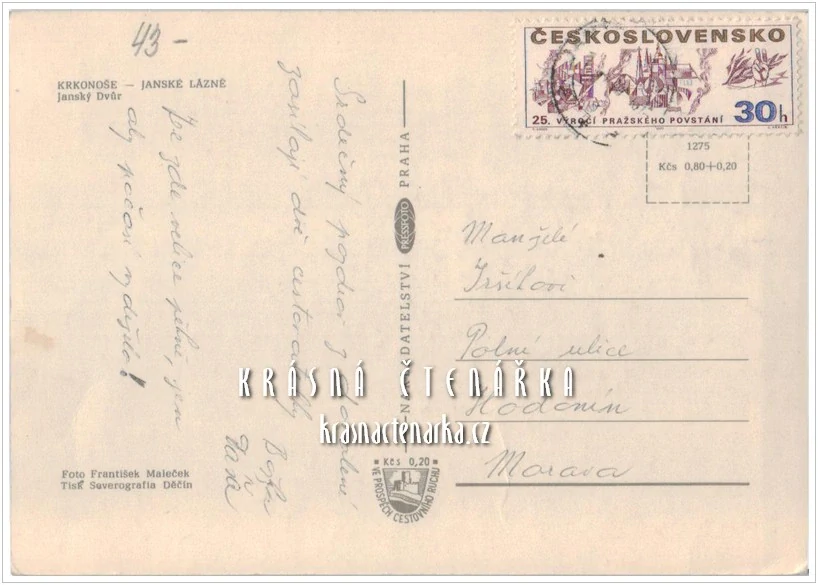 43 -
KRKONOŠE — JANSKÉ LÁZNĚ
Janský Dvůr
Srdečný pozdrav z dovolené
zasílají dvě cestovatelky
Je zde velice pěkně, jen
aby počasí vydrželo!
Foto František Maleček
Tisk Severografia Děčín
NAKLADATELSTVÍ PRESSFOTO PRAHA
Kčs 0,20
VE PROSPĚCH CESTOVNÍHO RUCHU
ČESKOSLOVENSKO
25. VÝROČÍ PRAŽSKÉHO POVSTÁNÍ
30h
1275
Kčs 0,80+0,20
Manželé
Polní ulice
Hodonín
Morava
KRÁSNÁ ČTENÁŘKA
krasnactenarka.cz